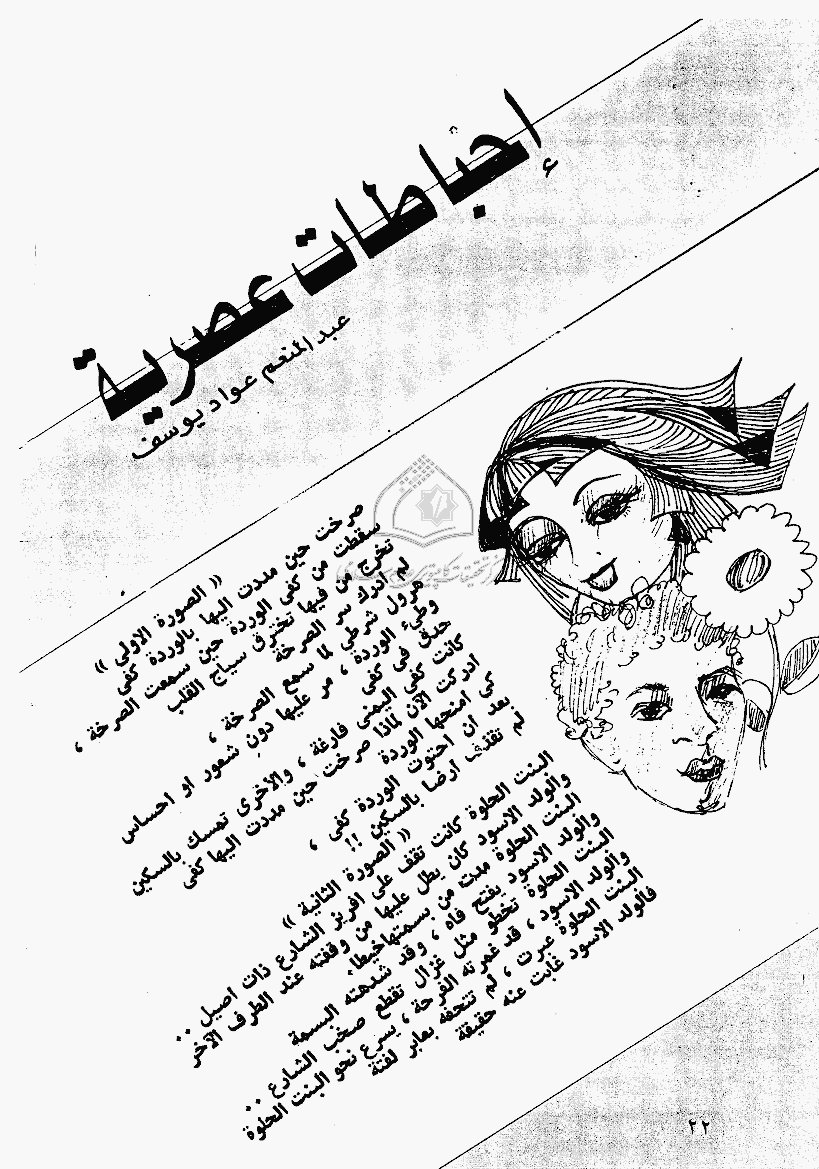 إحباطات عصرية
عبد المنعم عواد يوسف
« الصورة الاولى »
صرخت حين مددت اليها بالوردة كفى
سقطت من كفى الوردة حين سمعت الصرخة ،
تخرج من فيها تخترق سياج القلب
لم ادرك سر الصرخة
هرول شرطي لما سمع الصرخة ،
وطىء الوردة ، مر عليها دون شعور او احساس
حدق في كفى
كانت كفى اليمنى فارغة ، والاخرى تمسك بالسكين
ادركت الآن لماذا صرخت حين مددت اليها كفى
كي امنحها الوردة
بعد ان احتوت الوردة كفى ،
لم تقذف ارضا بالسكين !!
« الصورة الثانية »
البنت الحلوة كانت تقف على افريز الشارع ذات اصيل ..
والولد الاسود كان يطل عليها من وقفته عند الطرف الآخر
البنت الحلوة مدت من بسمتها خيطا.
والولد الاسود يفتح فاه ، وقد شدهته البسمة
البنت الحلوة تخطو مثل غزال تقطع صخب الشارع ..
والولد الاسود ، قد غمرته الفرحة ، يسرع نحو البنت الحلوة
البنت الحلوة عبرت ، لم تتحفه بعابر لفتة
فالولد الاسود غابت عنه حقيقة
٢٢